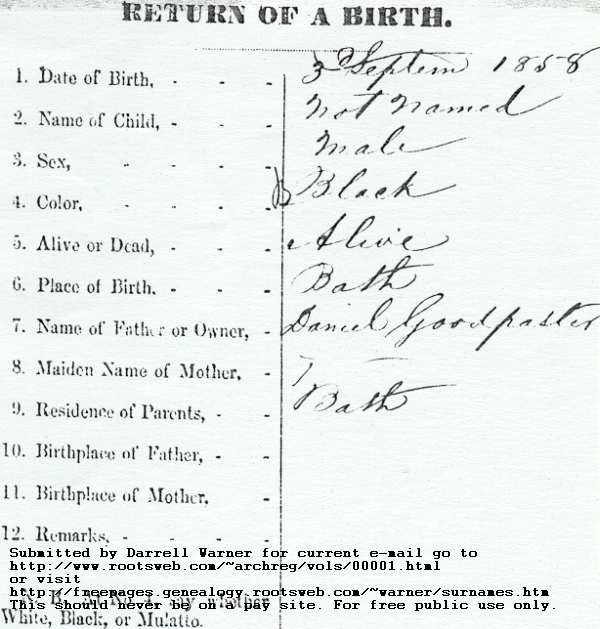 RETURN OF A BIRTH.
1. Date of Birth, - - - 3d Septem 1858
2. Name of Child, - - - Not Named
3. Sex, - - - - Male
4. Color, - - - - B Black
5. Alive or Dead, - - - Alive
6. Place of Birth. - - - Bath
7. Name of Father or Owner, - Daniel Goodpaster
8. Maiden Name of Mother, -
9. Residence of Parents, - - Bath
10. Birthplace of Father, - -
11. Birthplace of Mother, -
12. Remarks, - - - -
Submitted by Darrell Warner for current e-mail go to
http://www.rootsweb.com/~archreg/vols/00001.html
or visit
http://freepages.genealogy.rootsweb.com/~warner/surnames.htm
N. B. At No. 4 say whether
This should never be on a pay site. For free public use only.
White, Black, or Mulatto.